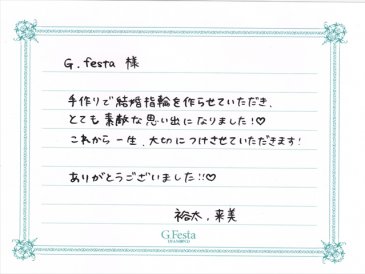 G.festa 様
手作りで結婚指輪を作らせていただき、
とても素敵な思い出になりました!♡
これから一生、大切につけさせていただきます!
ありがとうございました!!♡
裕太、来美
G.Festa
DIAMOND